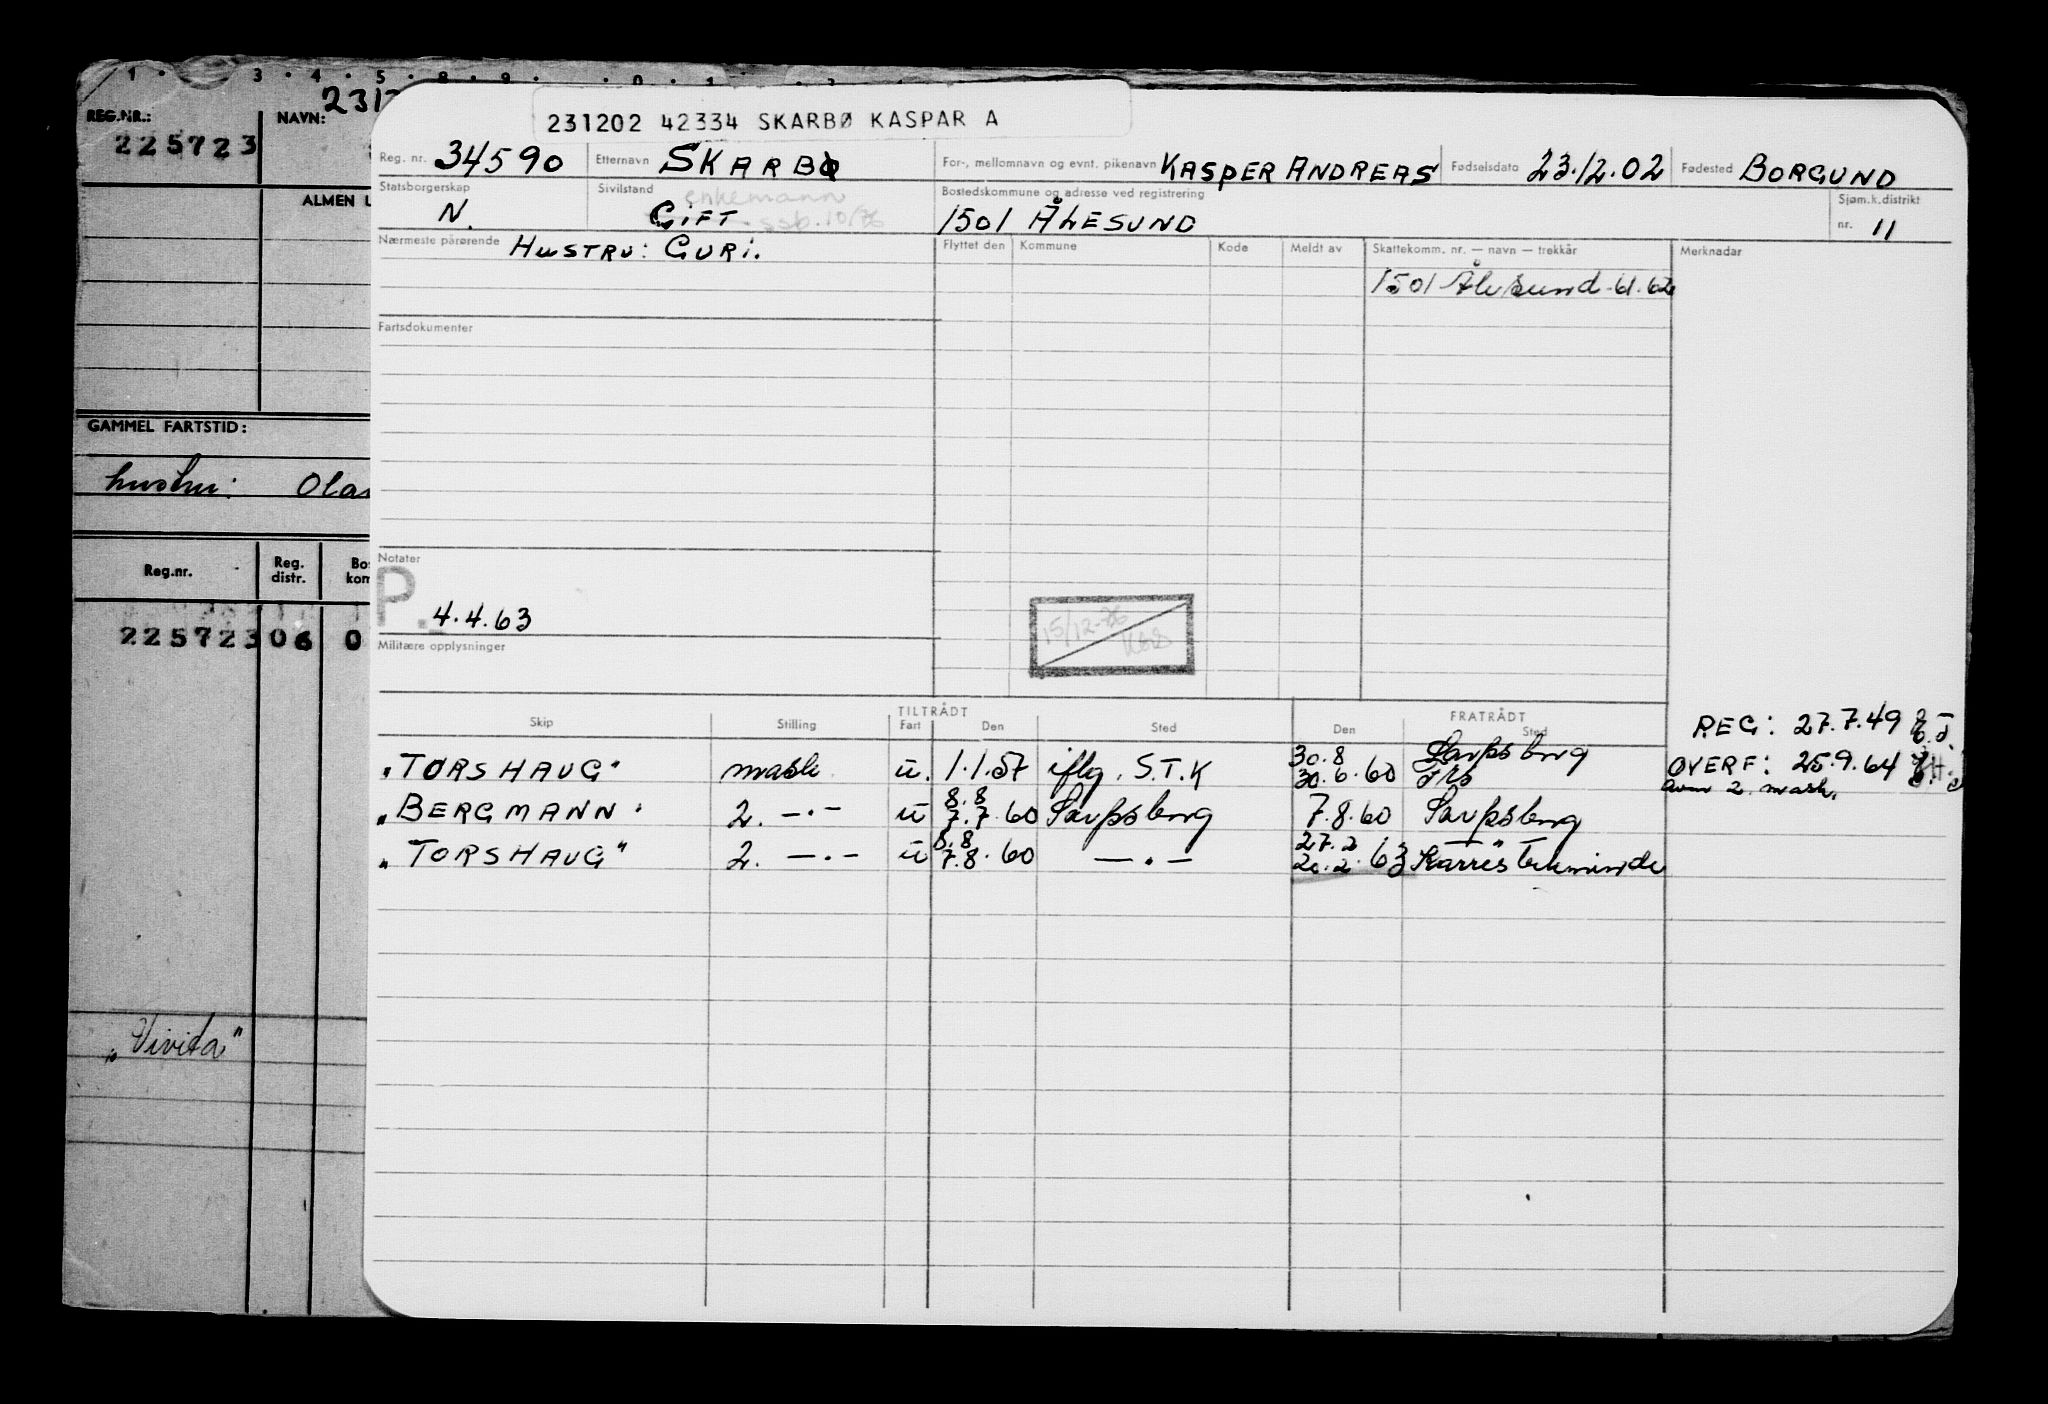 1 · 3 · 4 · 5 · 8 · 9 · 0 · 1
REG.NR.: 225723
NAVN: 231
ALMEN L
GAMMEL FARTSTID:
hustru: Ola
Reg.nr. Reg. distr. Bo kom
225723 06 0
"Vivita"
231202 42334 SKARBØ KASPAR A
Reg. nr. 34590 Etternavn SKARBØ For-, mellomnavn og evnt. pikenavn KASPER ANDREAS Fødselsdato 23.12.02 Fødested BORGUND
Statsborgerskap N. Sivilstand GIFT enkemann ssb. 10/76 Bostedskommune og adresse ved registrering 1501 ÅLESUND Sjøm.k.distrikt nr. 11
Nærmeste pårørende HUSTRU: GURI. Flyttet den Kommune Kode Meldt av Skattekomm. nr. — navn — trekkår Merknader
1501 Ålesund 61.62
Fartsdokumenter
Notater
P. 4.4.63
15/12-76
Militære opplysninger
TILTRÅDT FRATRÅDT
Skip Stilling Fart Den Sted Den Sted
REG: 27.7.49
"TORSHAUG" mask. u. 1.1.57 iflg. S.T.K 30.8 30.6.60 Sarpsborg
OVERF: 25.9.64
som 2. mask.
"BERGMANN" 2. —·— u 8.8 7.7.60 Sarpsborg 7.8.60 Sarpsborg
"TORSHAUG" 2. —·— u 8.8 7.8.60 —·— 27.2 20.2.63